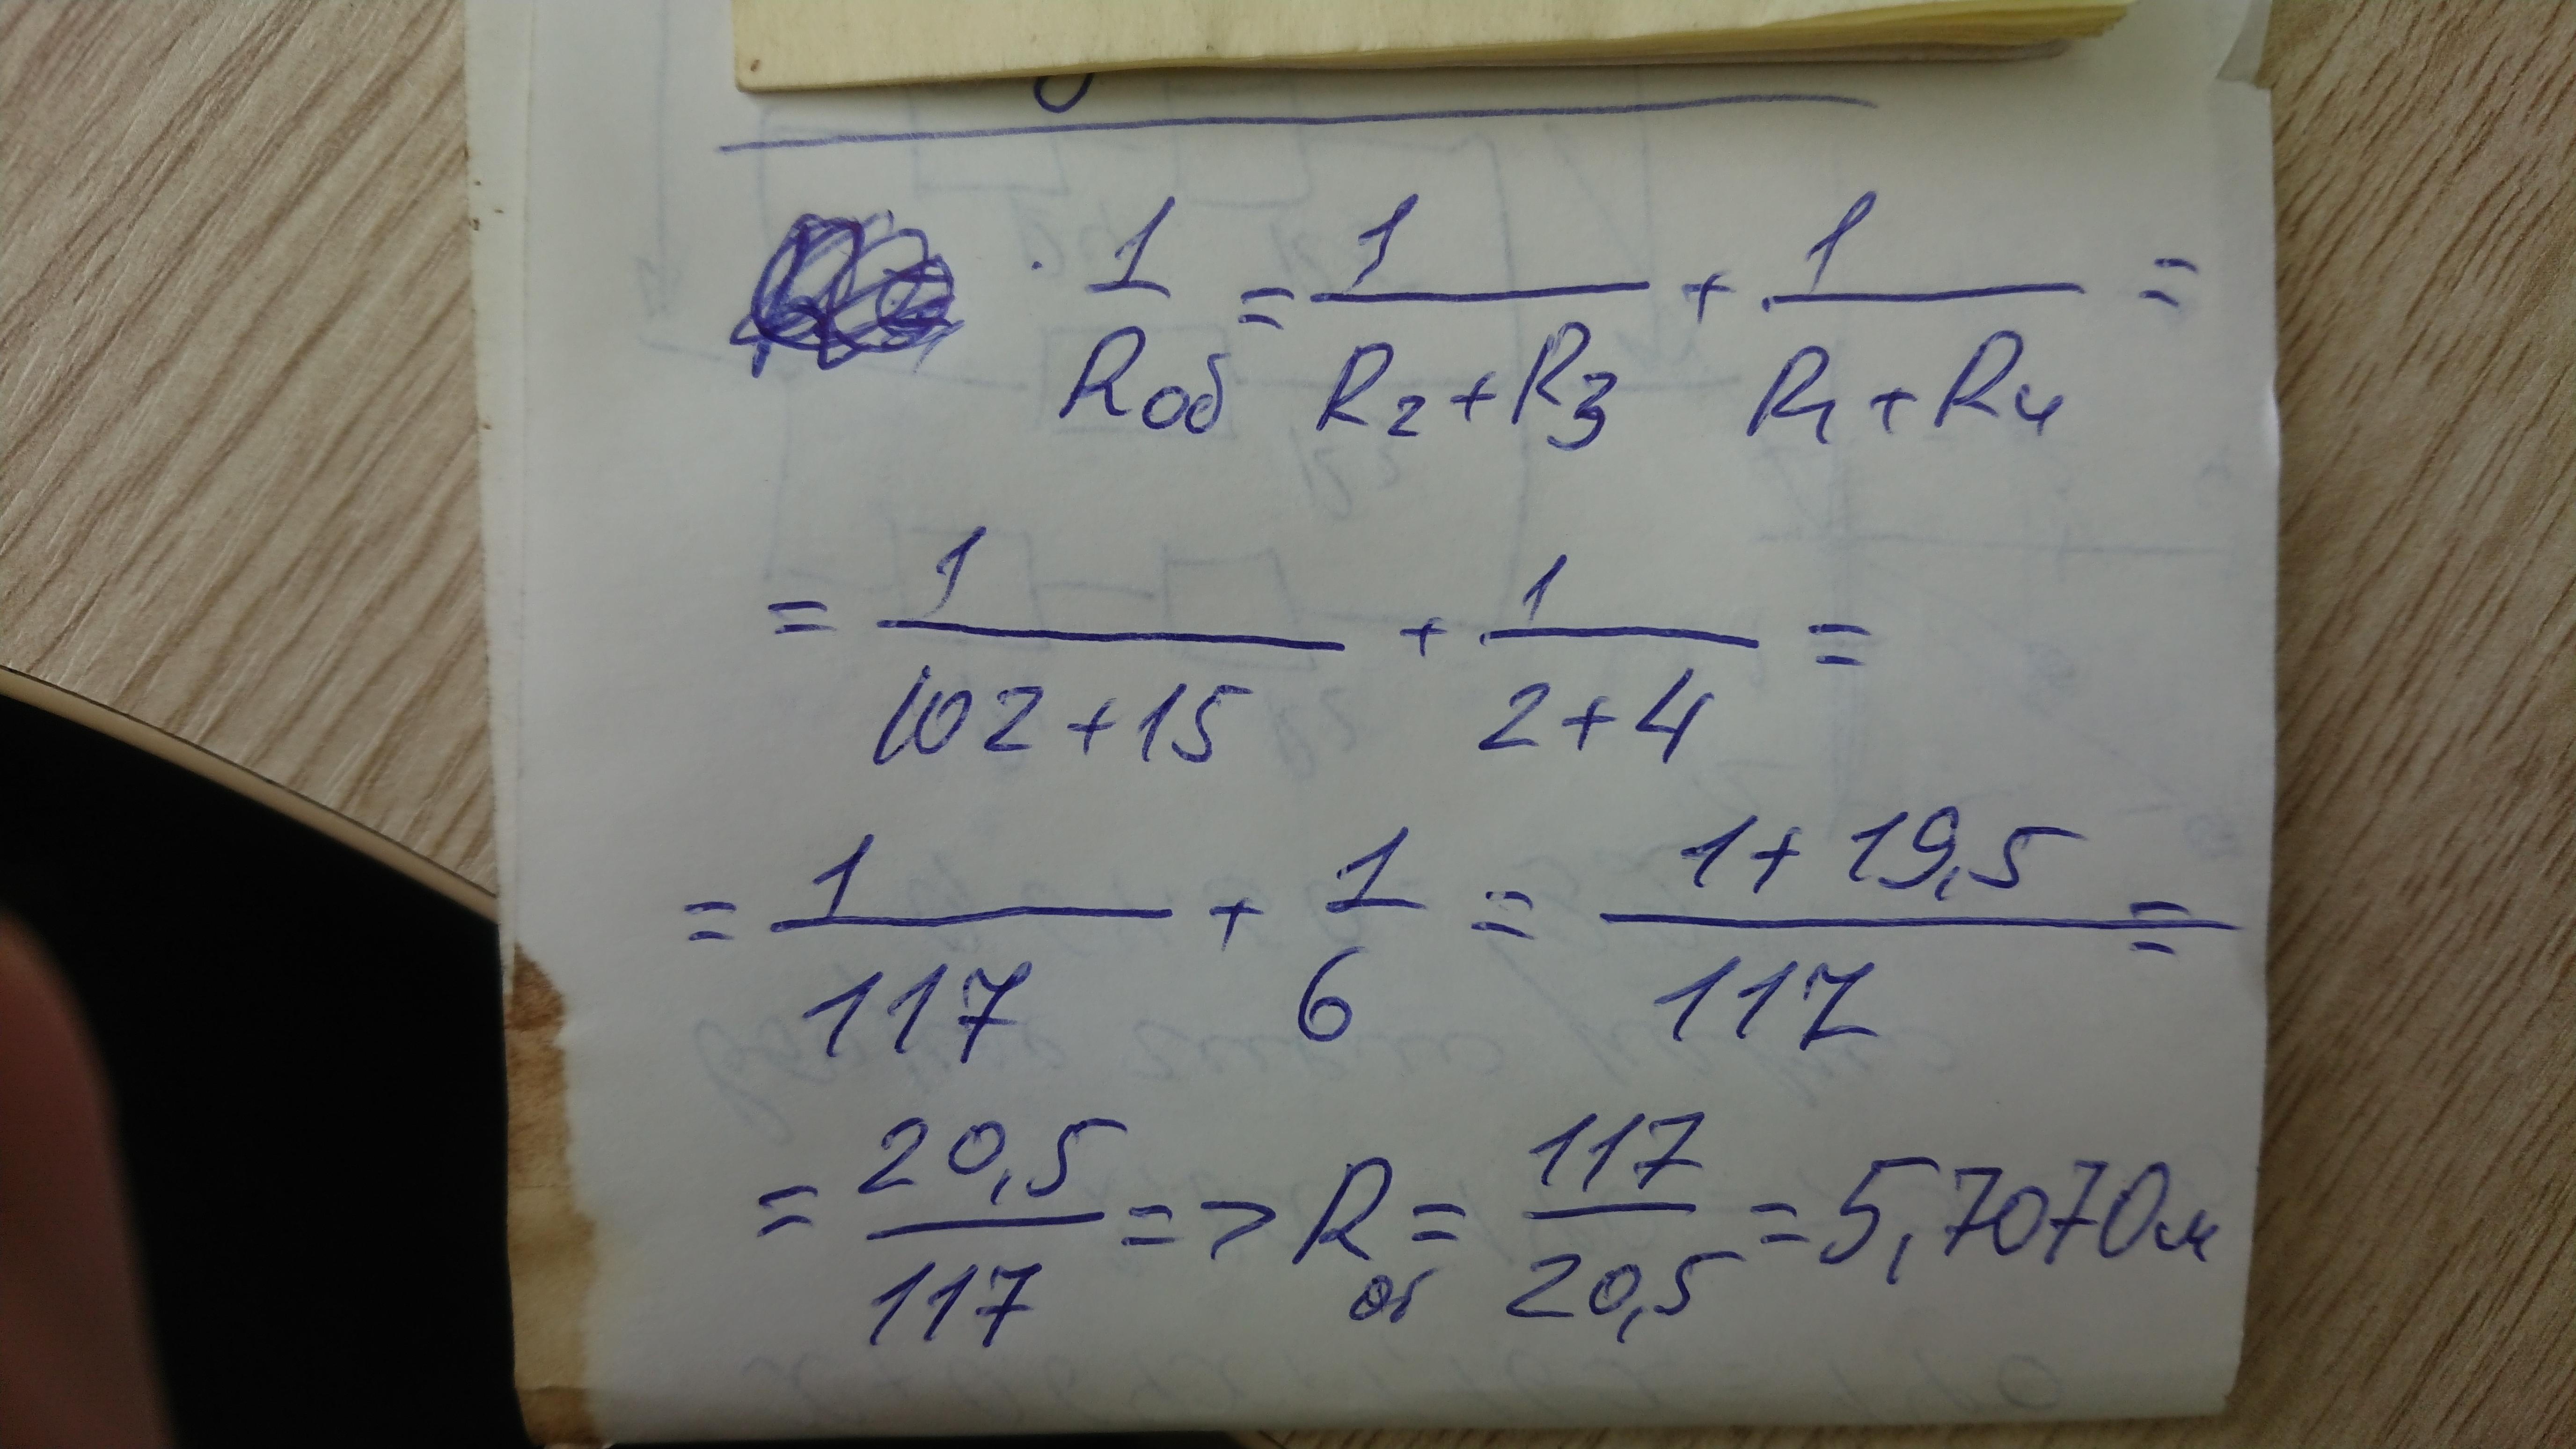 1/Rоб = 1/(R2+R3) + 1/(R1+R4) =
= 1/(102+15) + 1/(2+4) =
= 1/117 + 1/6 = (1+19,5)/117 =
= 20,5/117 => Rоб = 117/20,5 = 5,707Ом